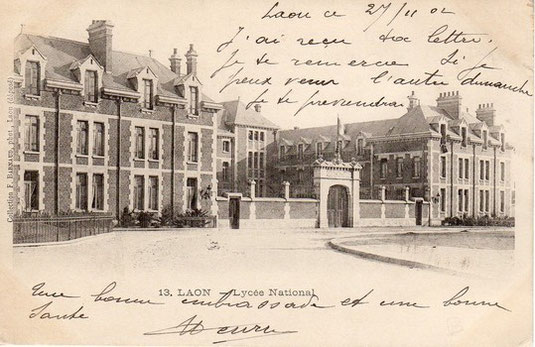 Laon ce 27/11 02
J'ai reçu ta lettre.
je te remercie Si je
peux venir l'autre dimanche
Je te préviendrai
Collection F. Barnaud, phot., Laon (déposé)
13. LAON — Lycée National
Une bonne embrassade et une bonne
santé
Henri